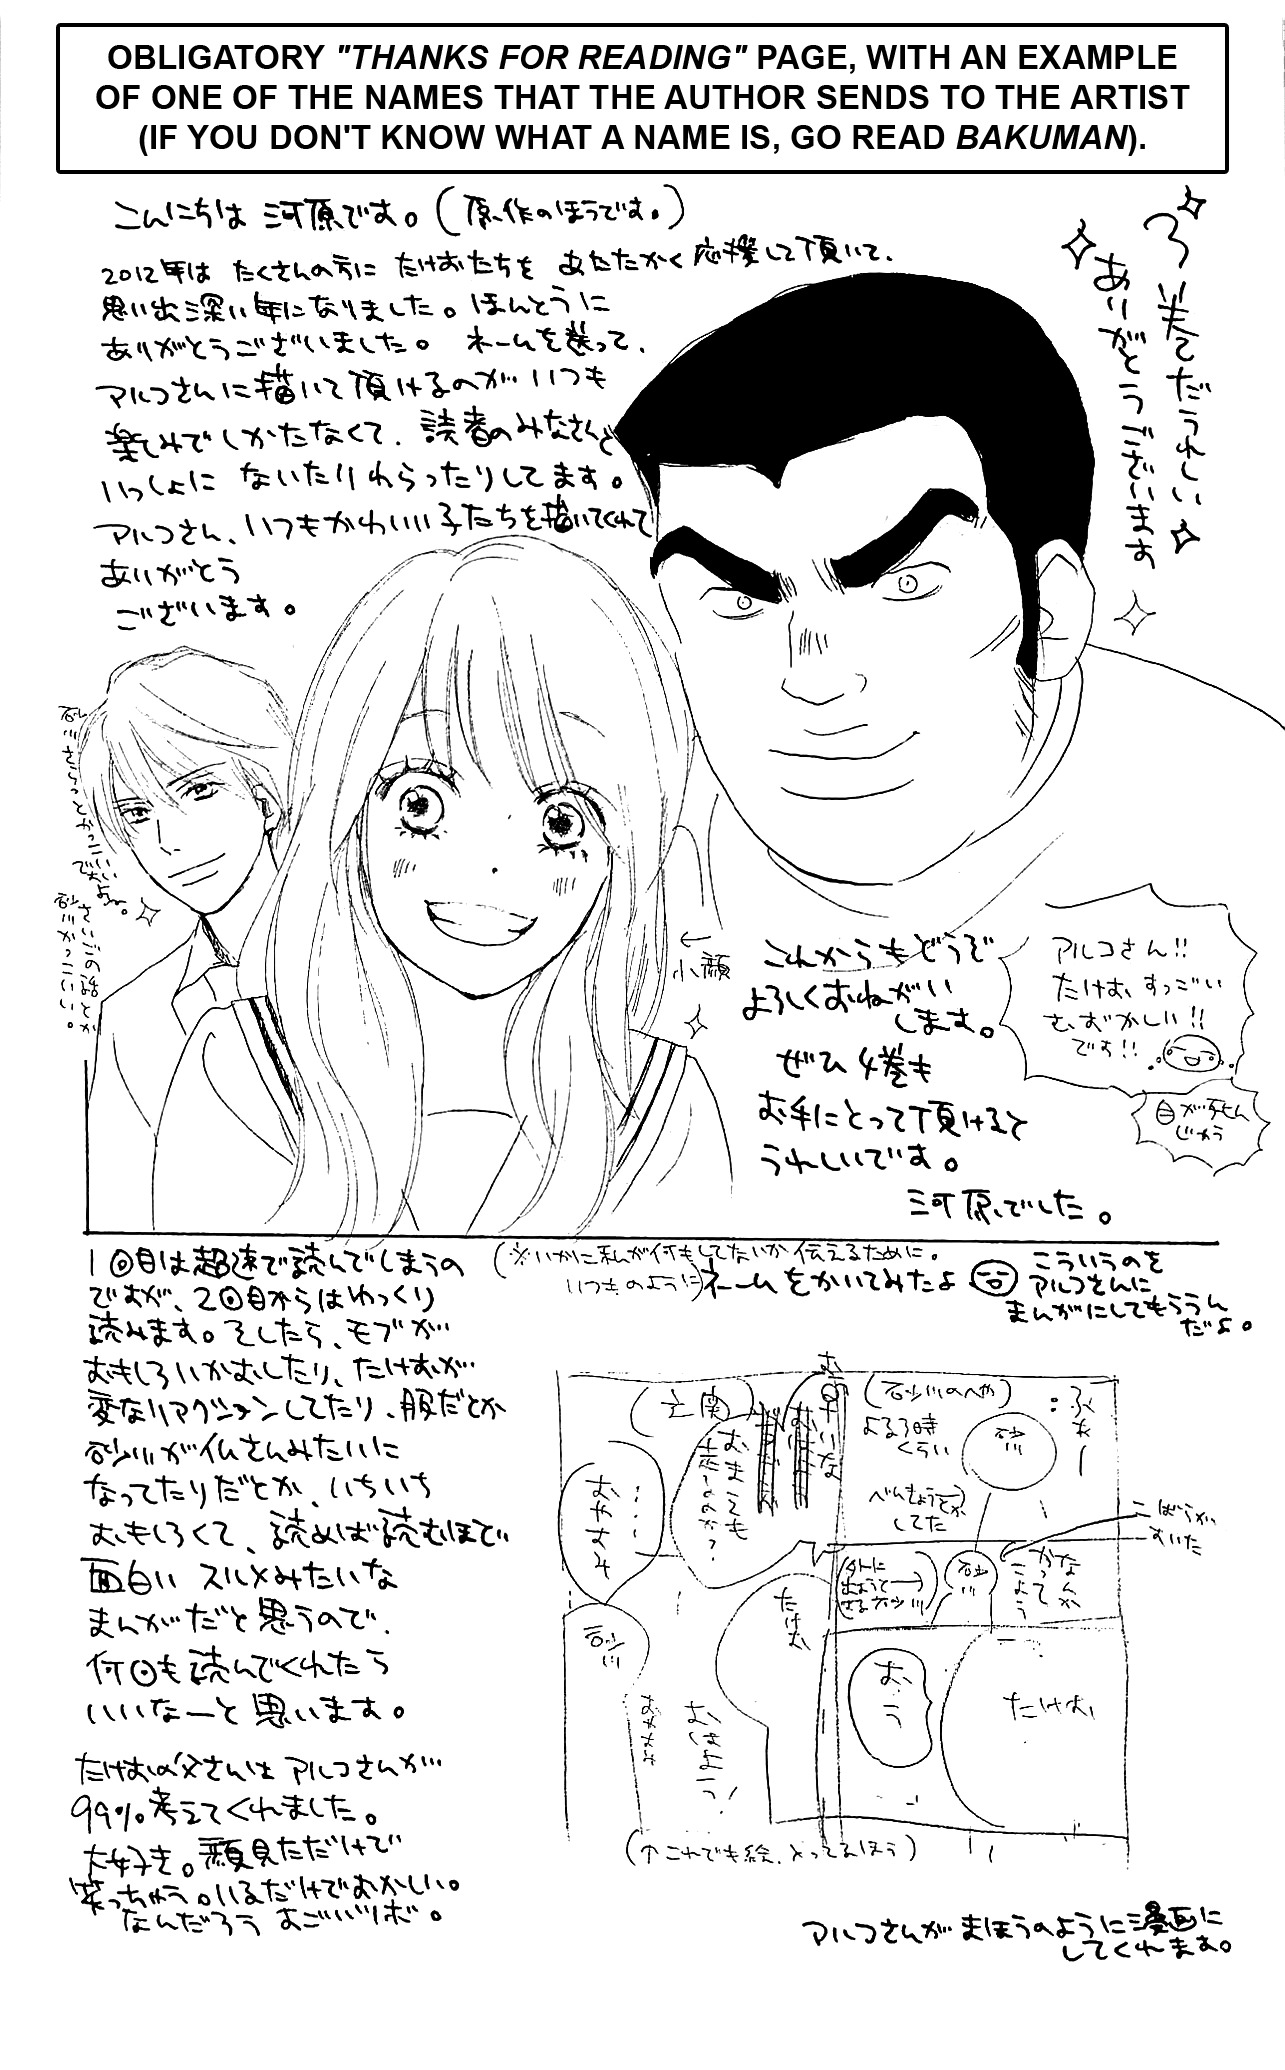 OBLIGATORY "THANKS FOR READING" PAGE, WITH AN EXAMPLE
OF ONE OF THE NAMES THAT THE AUTHOR SENDS TO THE ARTIST
(IF YOU DON'T KNOW WHAT A NAME IS, GO READ BAKUMAN).
こんにちは 河原です。(原作のほうです。)
2012年は たくさんの方に たけおたちを あたたかく応援して頂いて、
思い出深い年になりました。ほんとうに
ありがとうございました。 ネームを送って、
アルコさんに描いて頂けるのが いつも
楽しみでしかたなくて、読者のみなさんと
いっしょに ないたりわらったりしてます。
アルコさん、いつもかわいい子たちを描いてくれて
ありがとう
ございます。
3巻だうれしい
ありがとうございます
砂川さらっとかっこいい
ですよね。
さいごの話とか
砂川かっこいい。
←
小顔
これからもどうぞ
よろしくおねがい
します。
ぜひ 4巻も
お手にとって頂けると
うれしいです。
河原でした。
アルコさん!!
たけお、すっごい
むずかしい!!
です!!
自分が死んじゃう
1回目は超速で読んでしまうの
ですが、2回目からはゆっくり
読みます。そしたら、モブが
おもしろいかおしたり、たけおが
変なリアクションしてたり、服だとか
砂川が仏さんみたいに
なってたりだとか、いちいち
おもしろくて、読めば読むほど
面白い スルメみたいな
まんがだと思うので、
何回も読んでくれたら
いいなーと思います。
たけおの父さんは アルコさんが
99%考えてくれました。
大好き。顔見ただけで
笑っちゃう。いるだけでおかしい。
なんだろう すごいツボ。
(※いかに私が何もしてないか伝えるために。
いつものように)ネームをかいてみたよ
こういうのを
アルコさんに
まんがにしてもらうん
だよ。
(砂川のへや)
よる3時
くらい
砂川
ふぁー
べんきょうとか
してた
こばらが
すいた
なんか
かって
こよう
砂川
(外に
出ようと
する砂川)
たけお
おう
(玄関)
おまえも
たけお
おはよう!
……
おやすみ
砂川
(↑これでも絵、とってるほう)
アルコさんが まほうのように漫画に
してくれます。